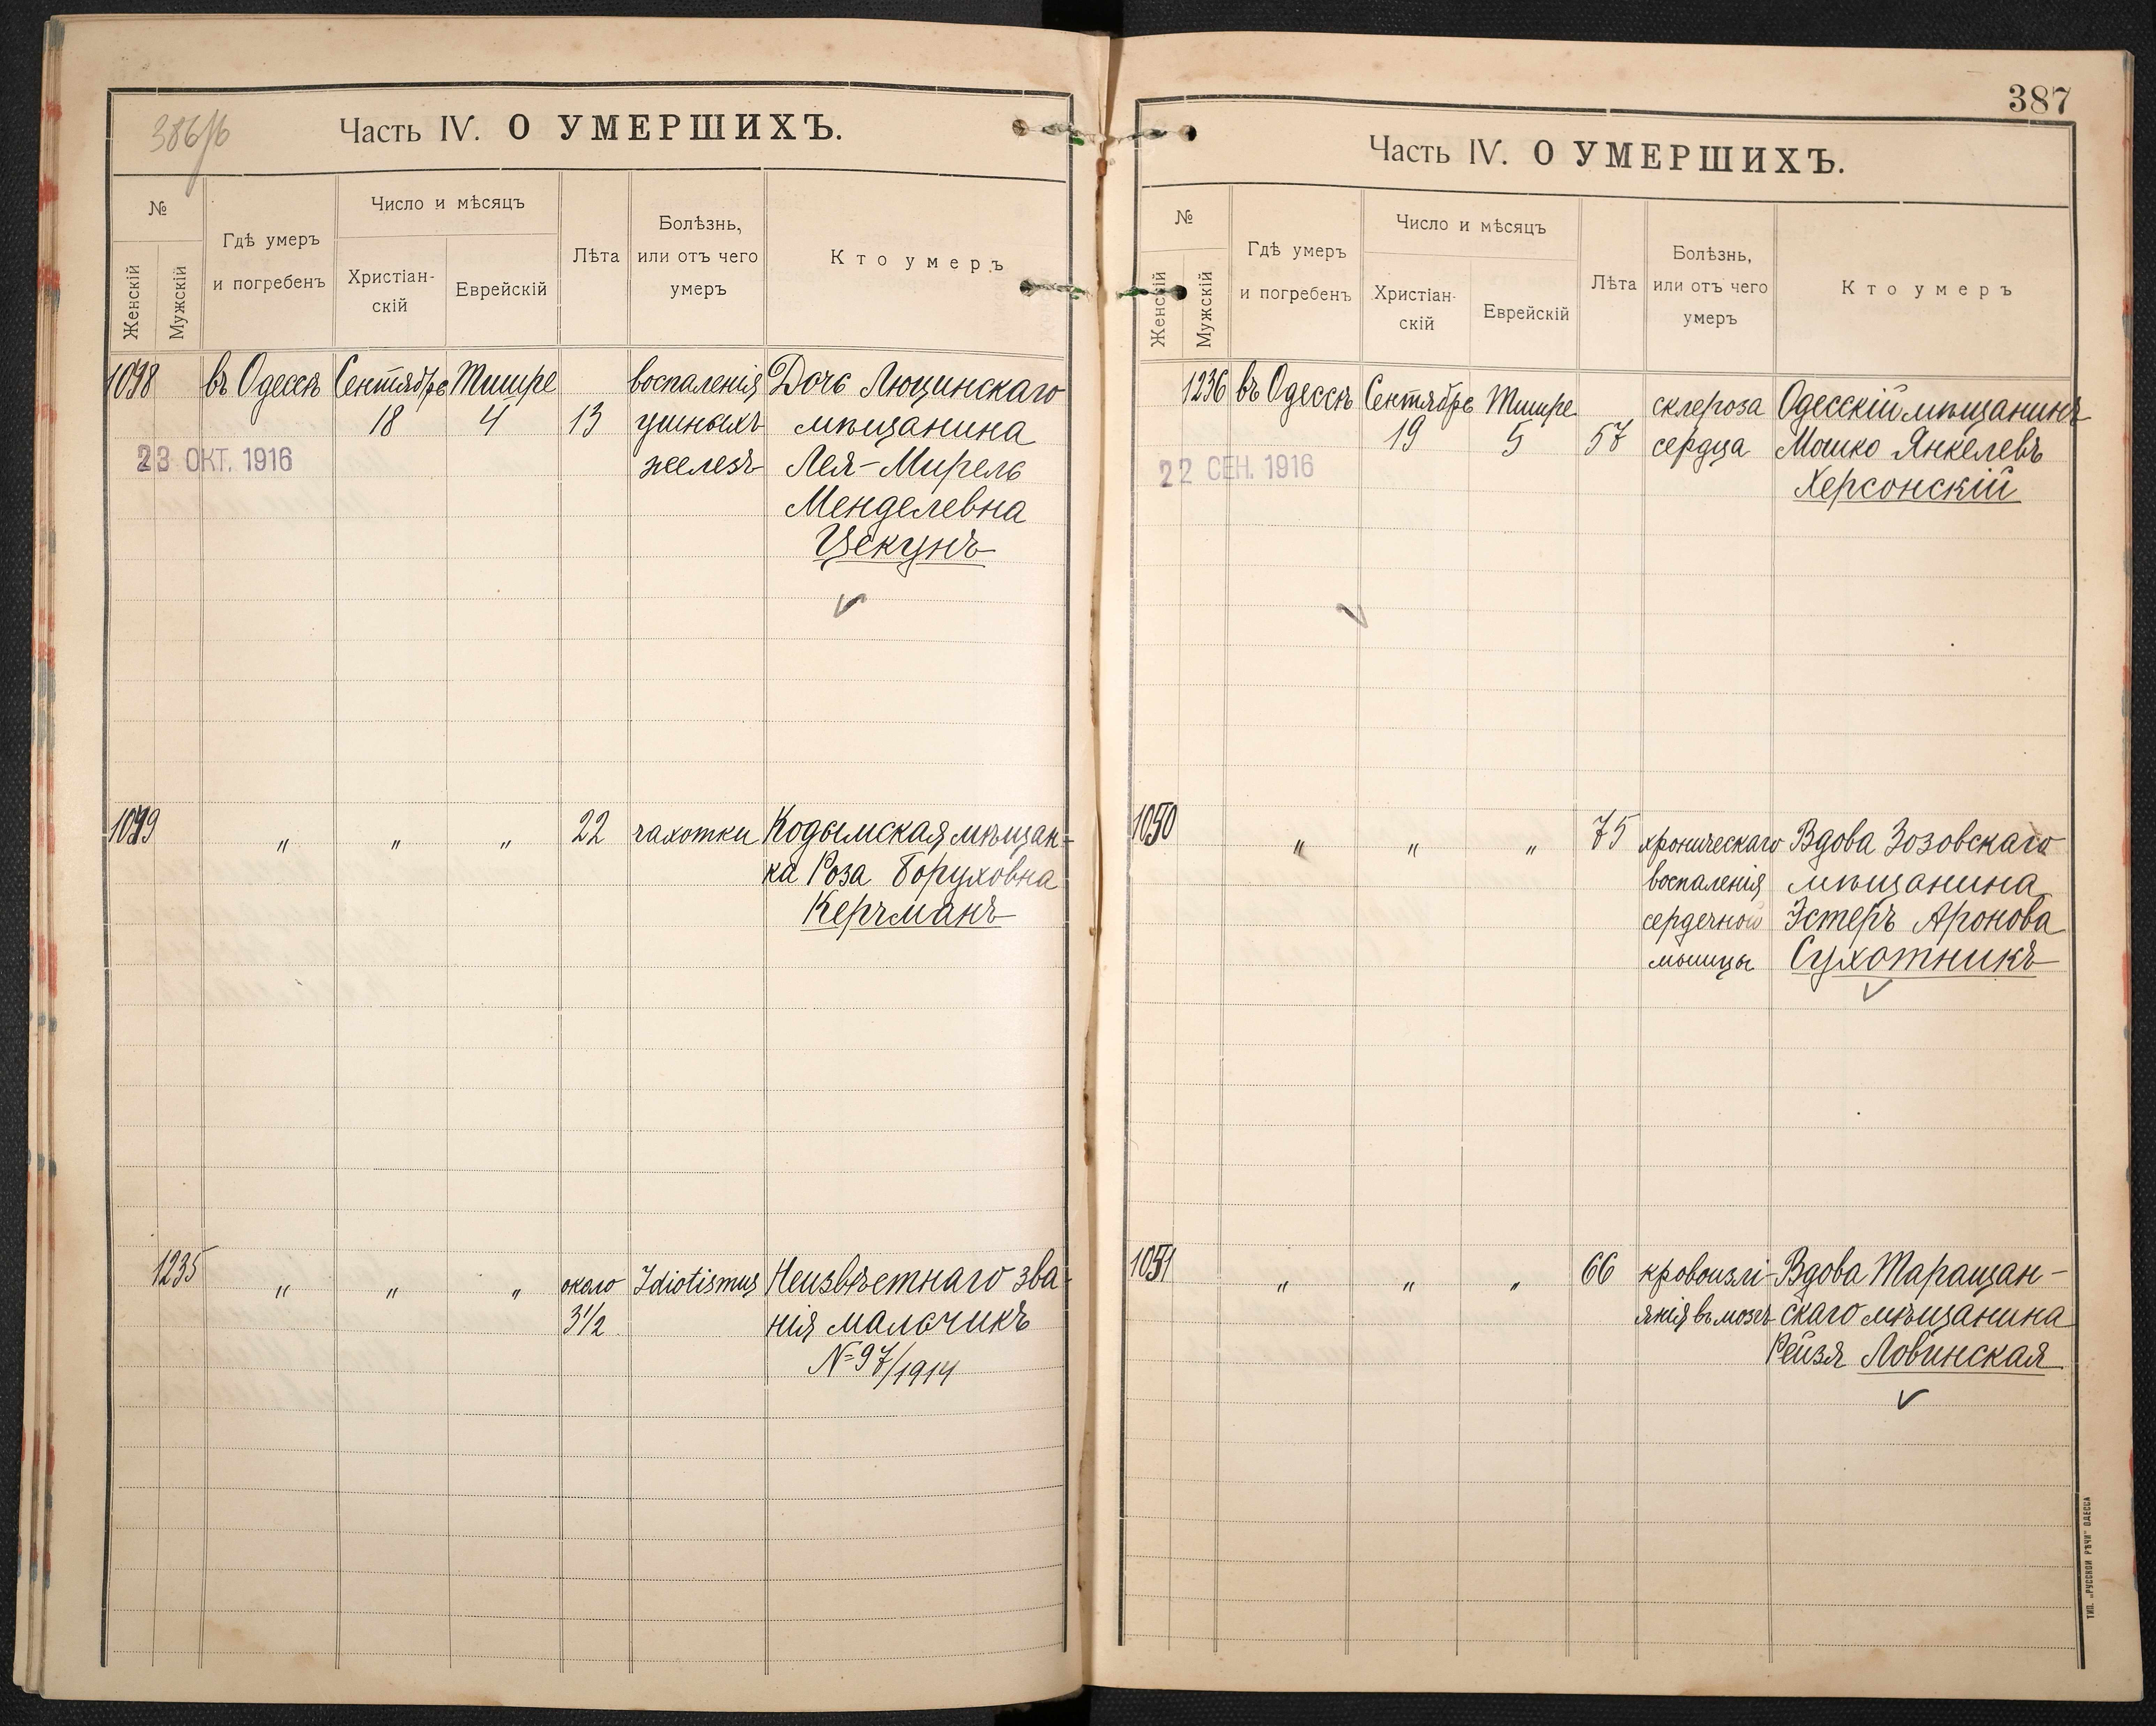 386/б
Часть IV. О УМЕРШИХЪ.
№
Женскій
Мужскій
Гдѣ умеръ
и погребенъ
Число и мѣсяцъ
Христіан-
скій
Еврейскій
Лѣта
Болѣзнь,
или отъ чего
умеръ
Кто умеръ
1098 въ Одессѣ Сентябрь Тишре воспаленія Дочь Люцинскаго
18 4 13 ушныхъ мѣщанина
23 ОКТ. 1916 железъ Лея-Мирель
Менделевна
Цекунъ
" " " 22 чахотки Кодымская мѣщан-
ка Роза Боруховна
Керчманъ
1235 " " " около Idiotismus Неизвѣстнаго зва-
3½ нія мальчикъ
№ 97/1914
387
Часть IV. О УМЕРШИХЪ.
№
Женскій
Мужскій
Гдѣ умеръ
и погребенъ
Число и мѣсяцъ
Христіан-
скій
Еврейскій
Лѣта
Болѣзнь,
или отъ чего
умеръ
Кто умеръ
1236 въ Одессѣ Сентябрь Тишре склероза Одесскій мѣщанинъ
19 5 57 сердца Мошко Янкелевъ
22 СЕН. 1916 Херсонскій
1050 " " " 75 хроническаго Вдова Зозовскаго
воспаленія мѣщанина
сердечной Эстеръ Аронова
мышцы Сухотникъ
1051 " " " 66 кровоизлі- Вдова Таращан-
янія въ мозгъ скаго мѣщанина
Рейзя Ловинская
ТИП. „РУССКОЙ РѢЧИ" ОДЕССА